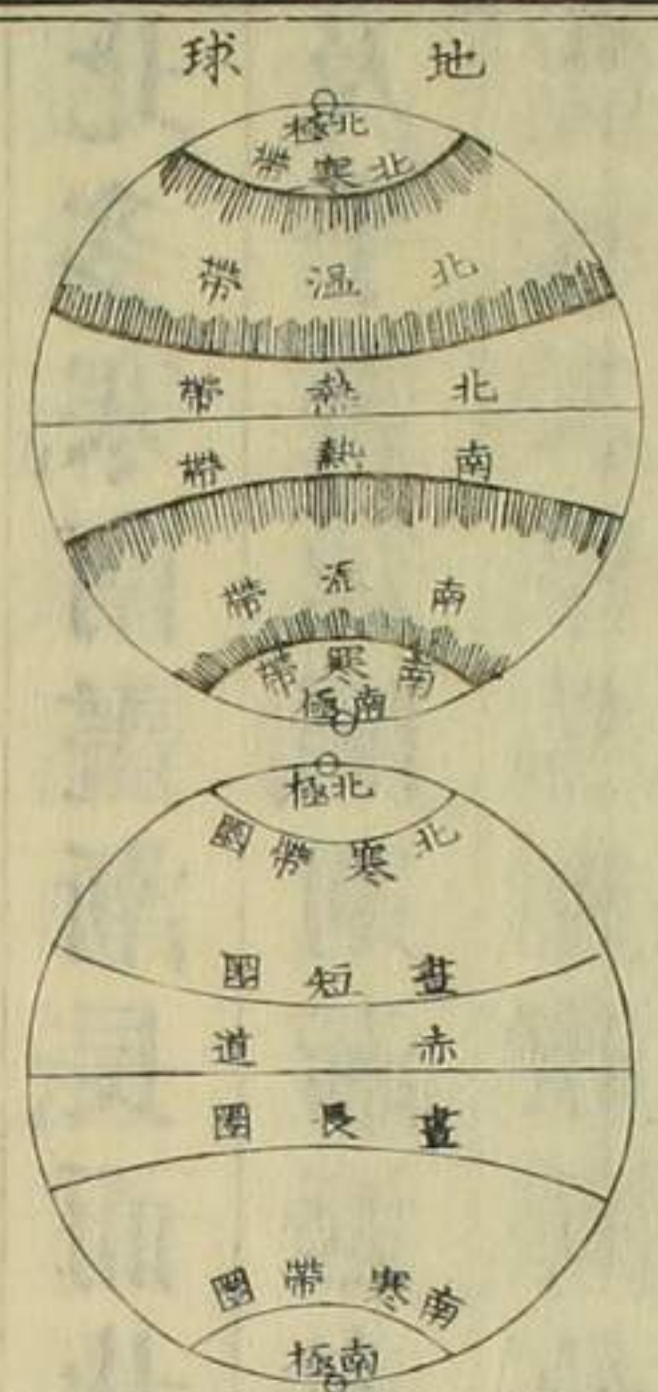 地球
北極
北寒帶
北温帶
北熱帶
南熱帶
南温帶
南寒帶
南極
北極
北寒帶圈
晝短圈
赤道
晝長圈
南寒帶圈
南極